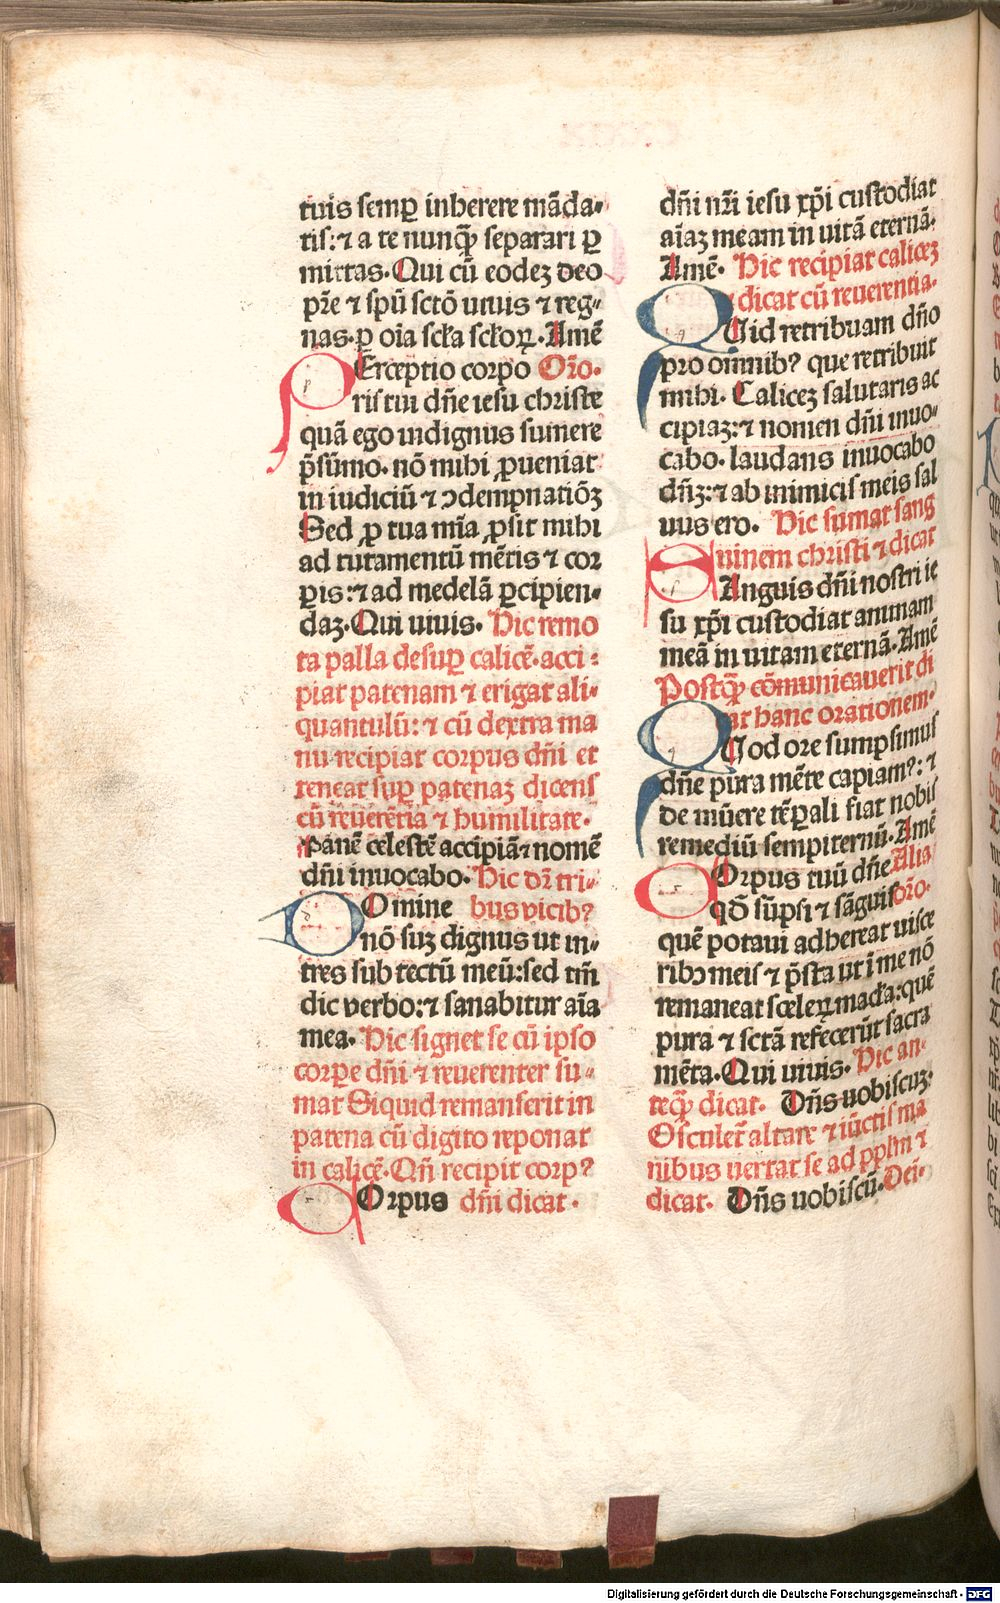 tuis semꝑ inherere mãda-
tis:⁊ a te nunqꝫ̃ separari ꝑ
mittas. Qui cũ eodeꝫ deo
pr̃e ⁊ spũ sctõ uiuis ⁊ reg-
nas. ꝑ oĩa scła scłoꝝ. Amẽ
PErceptio corpo Orõ.
ris tui dñe iesu christe
quã ego indignus sumere
p̃sũmo. nõ mihi ꝓueniat
in iudiciũ ⁊ ↄdempnatiõꝫ
Sed ꝓ tua mĩa ꝓsit mihi
ad tutamentũ mẽtis ⁊ cor
ꝑis:⁊ ad medelã ꝑcipien-
daꝫ. Qui uiuis. Hic remo
ta palla desuꝑ calicẽ. acci-
piat patenam ⁊ erigat ali-
quantulũ: ⁊ cũ dextra ma
nu recipiat corpus dñi et
teneat suꝑ patenaꝫ dicens
cũ reuerẽtia ⁊ humilitate.
Panẽ celestẽ accipiã ⁊ nomẽ
dñi inuocabo. Hic dr̃ tri-
DOmine busvicibꝰ
nõ suꝫ dignus ut in-
tres sub tectũ meũ: sed tm̃
dic verbo:⁊ sanabitur aĩa
mea. Hic signet se cũ ipso
corꝑe dñi ⁊ reuerenter su-
mat Siquid remanserit in
patena cũ digito reponat
in calicẽ. Qñ recipit corpꝰ
COrpus dñi dicat.
dñi nr̃i iesu xp̃i custodiat
aĩaꝫ meam in uitã eternã.
Amẽ. Hic recipiat caliceꝫ
⁊ dicat cũ reuerentia.
QUid retribuam dño
pro omnibꝰ que retribuit
mihi. Caliceꝫ salutaris ac
cipiaꝫ:⁊ nomen dñi inuo-
cabo. laudans inuocabo
dñꝫ:⁊ ab inimicis meis sal
uus ero. Hic sumat sang
uinem christi ⁊ dicat
SAnguis dñi nostri ie
su xp̃i custodiat animam
meã in uitam eternã. Amẽ
Postqꝫ̃ cõmunicauerit di
cat hanc orationem.
QUod ore sumpsimus
dñe pura mẽte capiamꝰ: ⁊
de mũere tẽꝑali fiat nobis
remediũ sempiternũ. Amẽ
COrpus tuũ dñe Alia
qđ sũpsi ⁊ sãguis orõ.
quẽ potaui adhereat uisce
ribꝫ meis ⁊ p̃sta ut ĩ me nõ
remaneat sceleꝝ macła: quẽ
pura ⁊ sctã refecerũt sacra
mẽta. Qui uiuis. Hic an-
teqꝫ̃ dicat. Dñs uobiscuꝫ.
Osculet̃ altare ⁊ iũctis ma
nibus uertat se ad pplm̃ ⁊
dicat. Dñs uobiscũ. Dei-
Digitalisierung gefördert durch die Deutsche Forschungsgemeinschaft - DFG